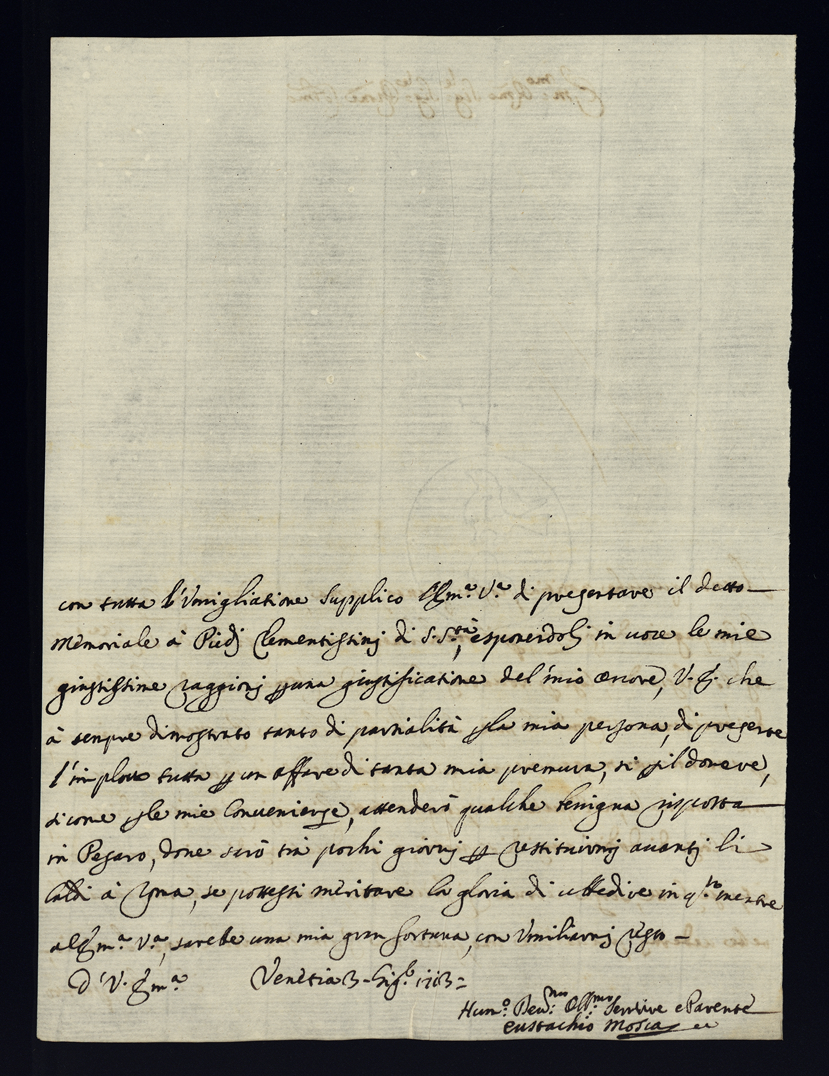 con tutta l'Umigliatione Supplico l'Em.ª V.ª di presentare il detto
Memoriale à Piedj Clementistinj di S. S.tà, esponerdolj in uoce le mie
giustissime raggionj p una giustificatione del mio onore, V. E. che
à senpre dimostrato tanto di partialità p la mia persona, di presente
l'inploro tutta p un affare di tanta mia premura, si p il douere,
sicome p le mie Conuenienze, attenderò qualche benigna risposta
in Pesaro, doue sarò trà pochi giornj p restituirmj auantj li
Caldi à Roma, se potessi meritare la gloria di ubbedire in q.to mentre
al Em.ª V.ª, sarebe una mia gran fortuna, con Umiliarmj
D' V. Em.ª Venetia 3 1713
Hum.o Deu.mo Obb.mo Seruire e Parente
Eustachio Mosca